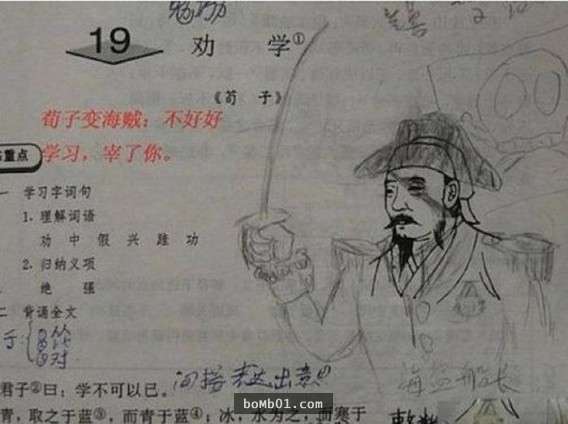 19 劝 学①
《荀 子》
荀子变海贼：不好好
学习，宰了你。
重点
一 学习字词句
1. 理解词语
劝 中 假 兴 跬 功
2. 归纳义项
绝 强
二 背诵全文
君子②曰：学不可以已。
青，取之于蓝③，而青于蓝④；冰，水为之，而寒于
海盗船长
bomb01.com